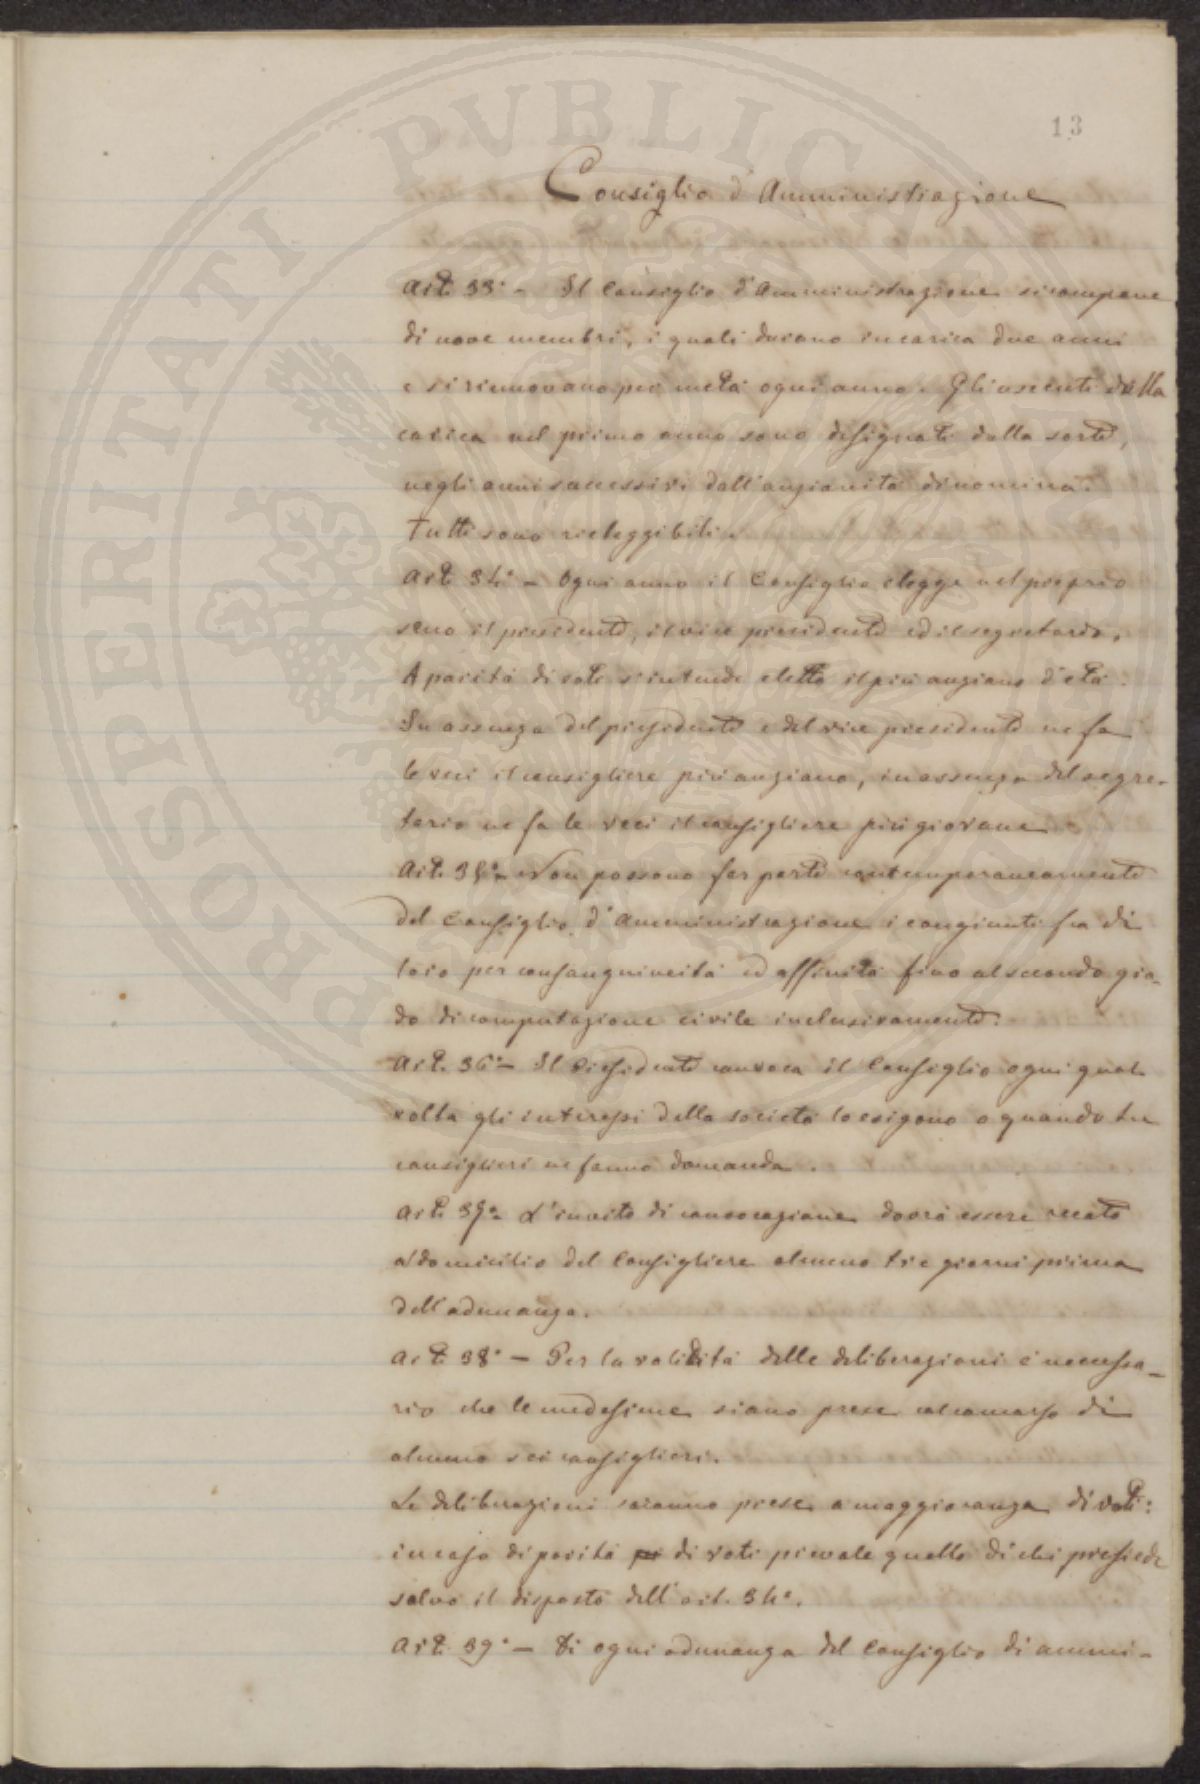 13
Consiglio d'Amministrazione
Art. 33° - Il Consiglio d'Amministrazione si compone
di nove membri, i quali durano in carica due anni
e si rinnovano per metà ogni anno. Gli uscenti dalla
carica nel primo anno sono designati dalla sorte,
negli anni successivi dall'anzianità di nomina.
Tutti sono rieleggibili.
Art. 34° - Ogni anno il Consiglio elegge nel proprio
seno il presidente, il vice presidente ed il segretario.
A parità di voti s'intende eletto il più anziano d'età.
In assenza del presidente e del vice presidente ne fa
le veci il consigliere più anziano, in assenza del segre-
tario ne fa le veci il consigliere più giovane.
Art. 35° - Non possono far parte contemporaneamente
del Consiglio d'Amministrazione i congiunti fra di
loro per consanguineità ed affinità fino al secondo gra-
do di computazione civile inclusivamente.
Art. 36° - Il Presidente convoca il Consiglio ogni qual
volta gli interessi della società lo esigono o quando tre
consiglieri ne fanno domanda.
Art. 37° - L'invito di convocazione dovrà essere recato
a domicilio del Consigliere almeno tre giorni prima
dell'adunanza.
Art. 38° - Per la validità delle deliberazioni è necessa-
rio che le medesime siano prese col concorso di
almeno sei consiglieri.
Le deliberazioni saranno prese a maggioranza di voti:
in caso di parità di voti prevale quello di chi presiede
salvo il disposto dell'art. 34°.
Art. 39° - Di ogni adunanza del Consiglio di ammi-
PROSPERITATI PVBLICAE